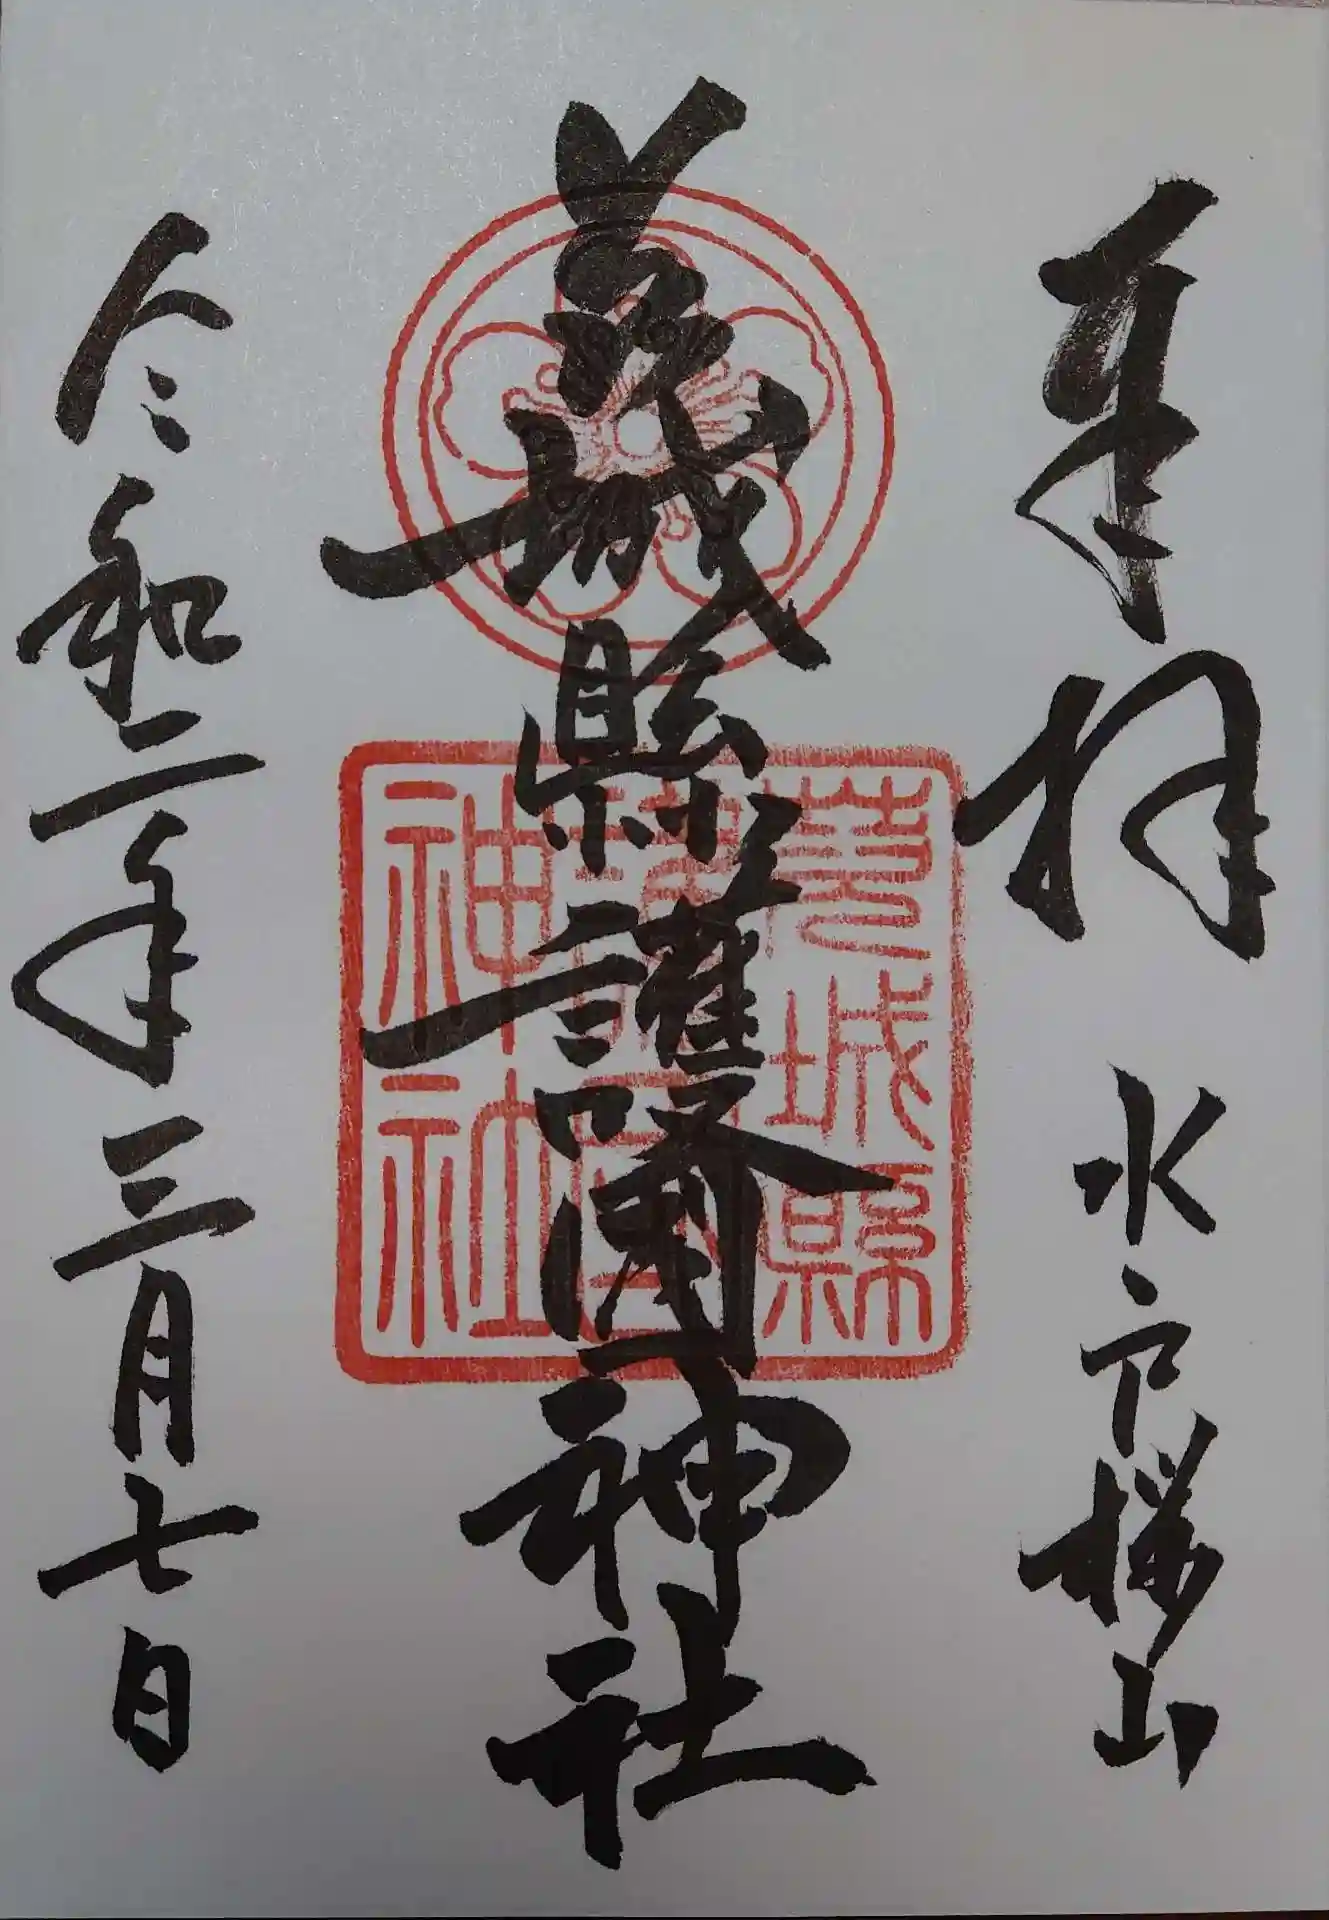 奉拝 水戸桜山
茨城縣護國神社
茨城縣
護國
神社
令和二年三月七日